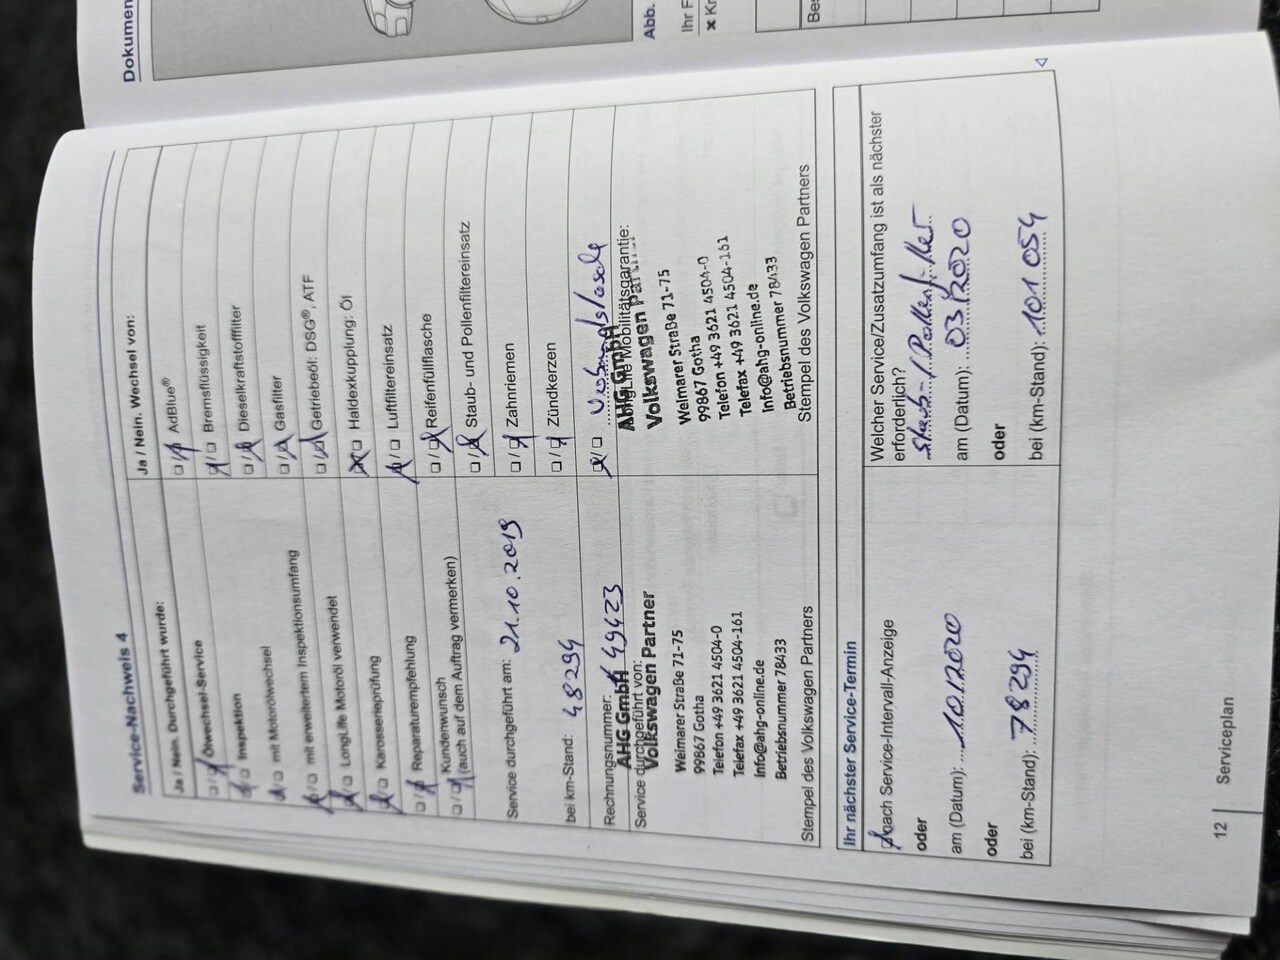 Dokumen
Abb.
Ihr F
× Kr
Bes
Service-Nachweis 4
Ja / Nein. Durchgeführt wurde:
Ölwechsel-Service
Inspektion
mit Motorölwechsel
mit erweitertem Inspektionsumfang
LongLife Motoröl verwendet
Karosserieprüfung
Reparaturempfehlung
Kundenwunsch
(auch auf dem Auftrag vermerken)
Service durchgeführt am: 21.10.2019
bei km-Stand: 48294
Rechnungsnummer: 49423
Service durchgeführt von:
AHG GmbH
Volkswagen Partner
Weimarer Straße 71-75
99867 Gotha
Telefon +49 3621 4504-0
Telefax +49 3621 4504-161
Info@ahg-online.de
Betriebsnummer 78433
Stempel des Volkswagen Partners
Ja / Nein. Wechsel von:
AdBlue®
Bremsflüssigkeit
Dieselkraftstofffilter
Gasfilter
Getriebeöl: DSG®, ATF
Haldexkupplung: Öl
Luftfiltereinsatz
Reifenfüllflasche
Staub- und Pollenfiltereinsatz
Zahnriemen
Zündkerzen
LongLife Mobilitätsgarantie:
AHG GmbH
Volkswagen Partner
Weimarer Straße 71-75
99867 Gotha
Telefon +49 3621 4504-0
Telefax +49 3621 4504-161
Info@ahg-online.de
Betriebsnummer 78433
Stempel des Volkswagen Partners
Ihr nächster Service-Termin
nach Service-Intervall-Anzeige
oder
am (Datum): 10/2020
oder
bei (km-Stand): 78294
Welcher Service/Zusatzumfang ist als nächster
erforderlich?
Staub-/Pollenfilter
am (Datum): 03/2020
oder
bei (km-Stand): 101 054
12
Serviceplan